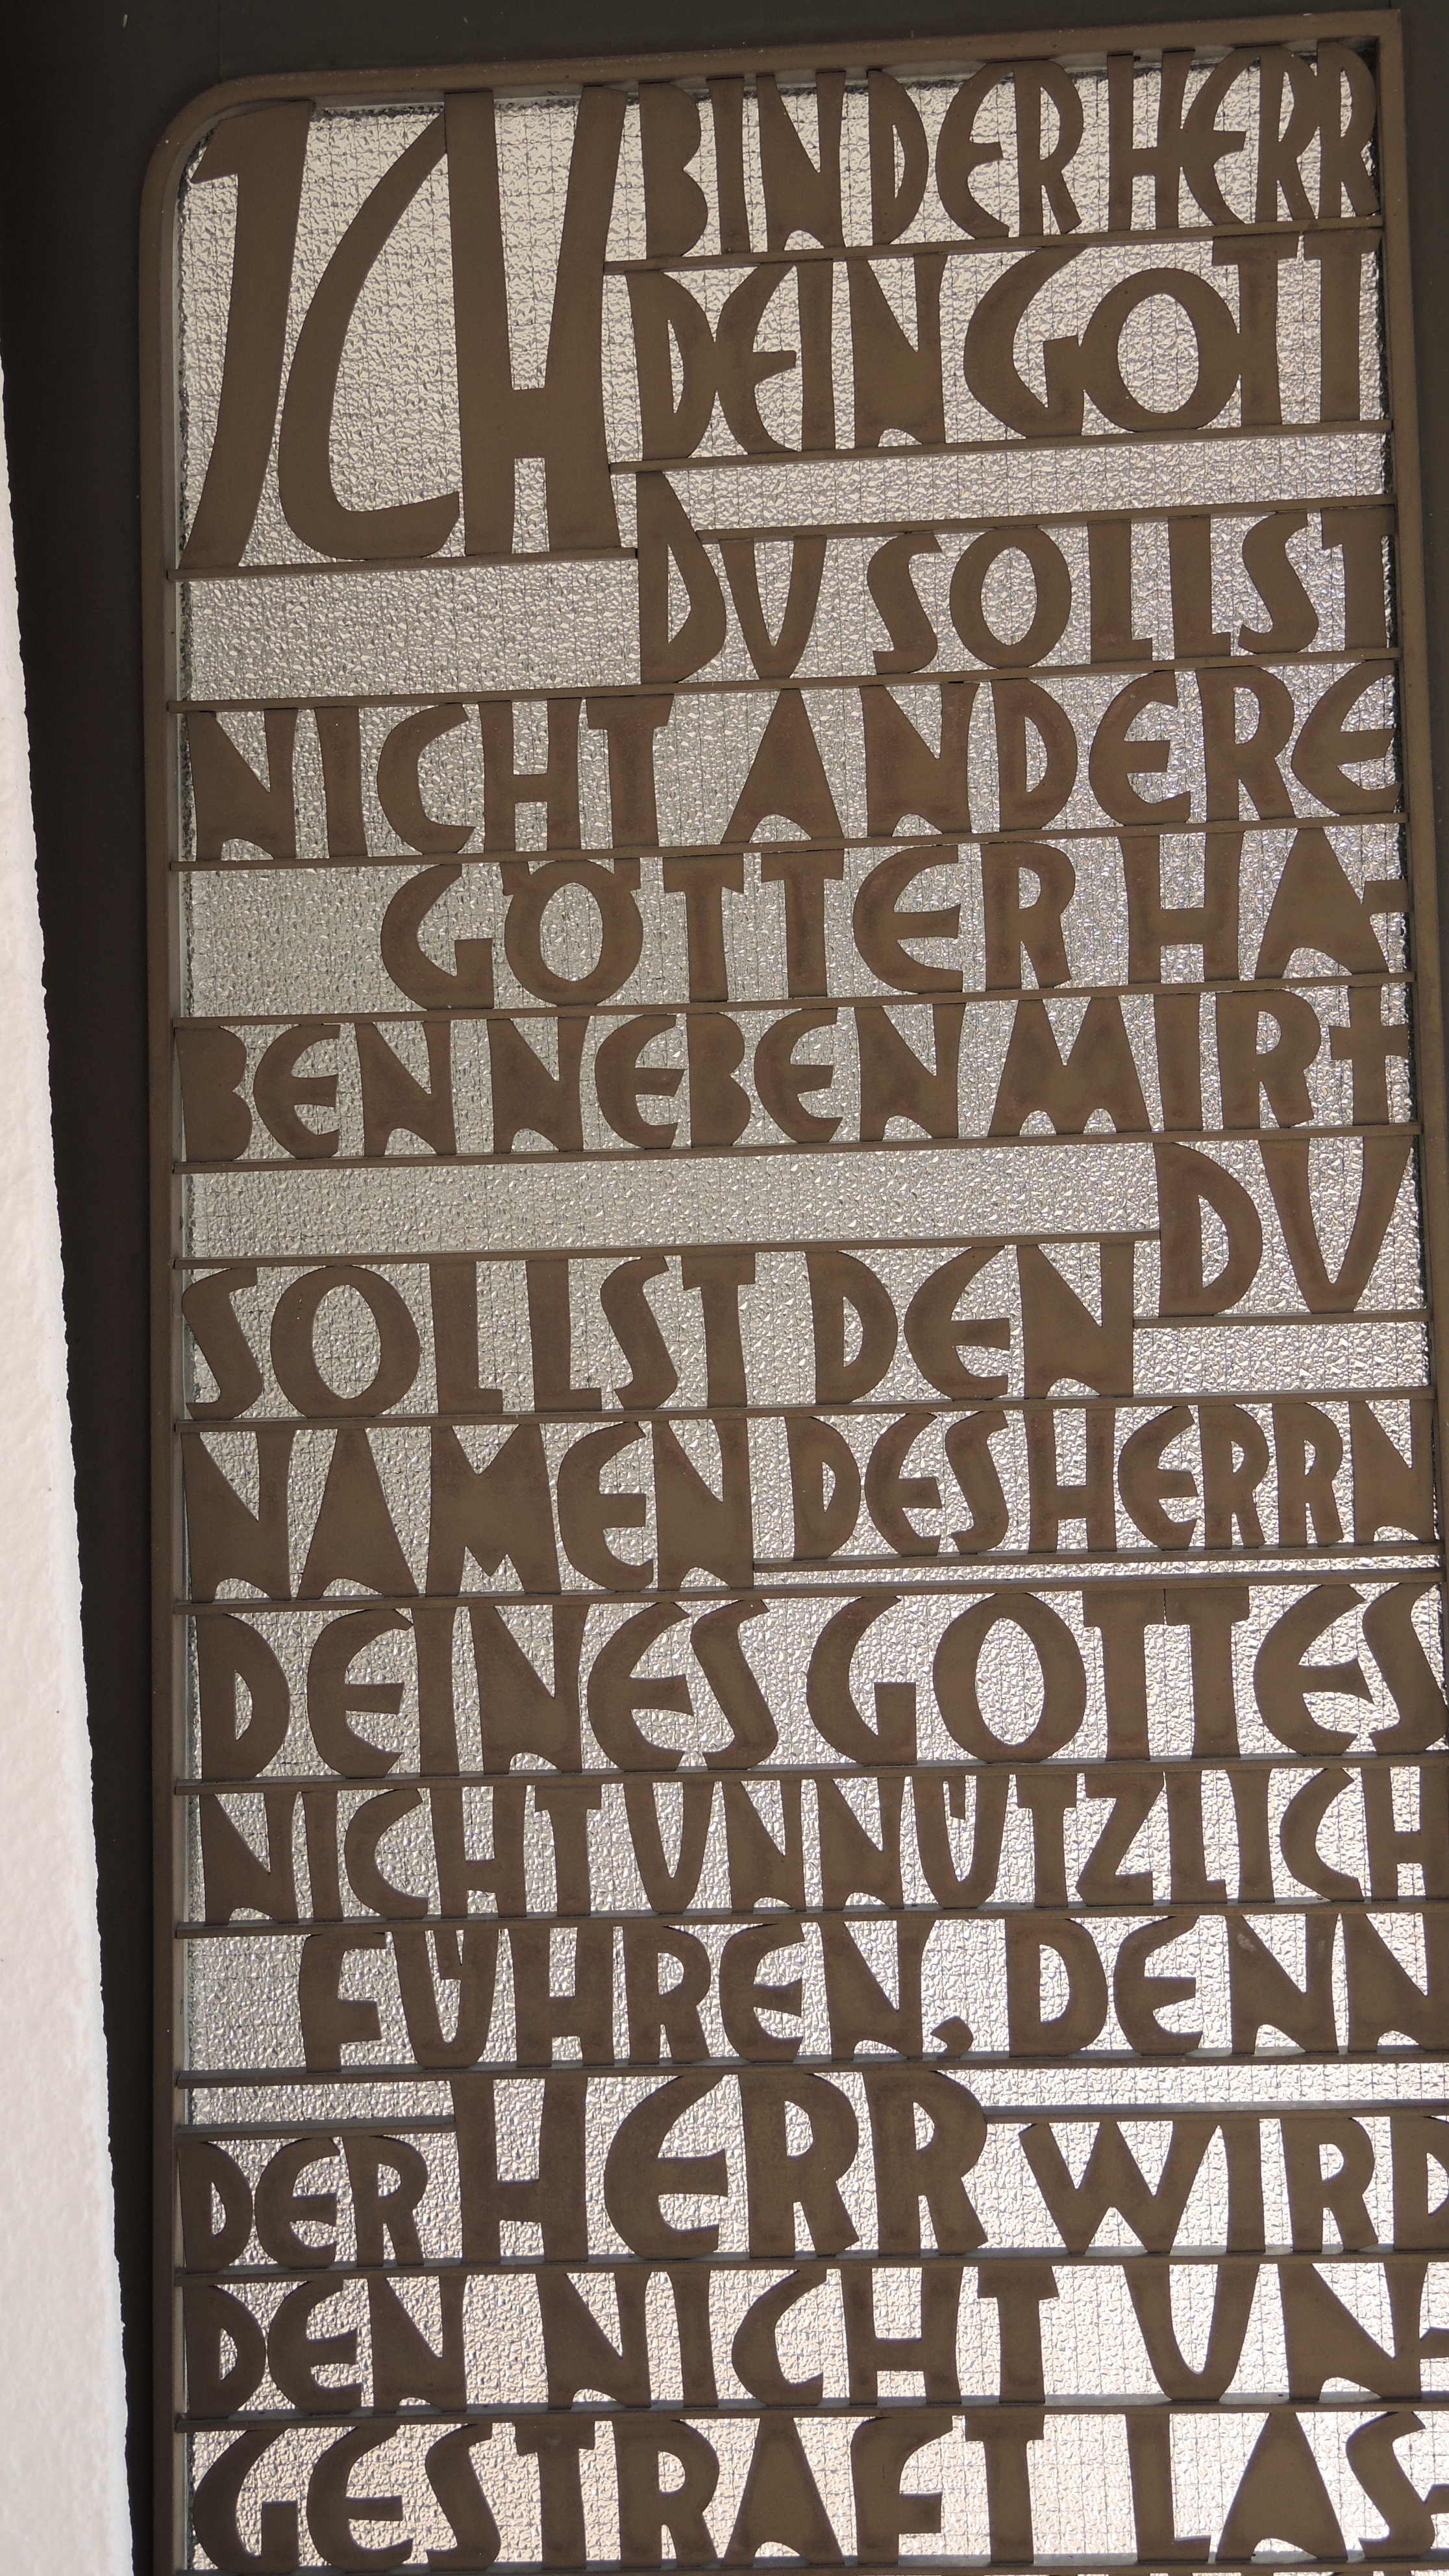 ICH BIN DER HERR
DEIN GOTT
DU SOLLST
NICHT ANDERE
GÖTTER HA-
BEN NEBEN MIR †
DU
SOLLST DEN
NAMEN DES HERRN
DEINES GOTTES
NICHT UNNÜTZLICH
FÜHREN, DENN
DER HERR WIRD
DEN NICHT UN-
GESTRAFT LAS-